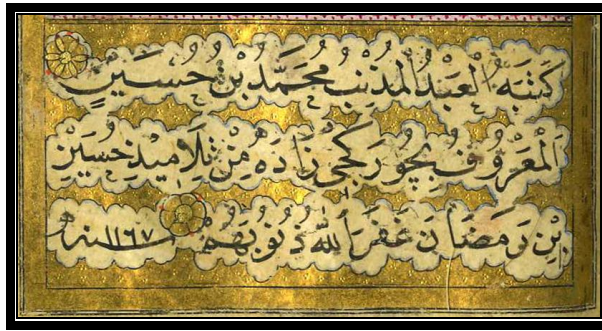 كَتَبَهُ الْعَبْدُ الْمُذْنِبُ مُحَمَّدُ بْنُ حُسَيْنٍ
الْمَعْرُوفُ بِچُورَكْجِى زَادَه مِنْ تَلَامِيذِ حُسَيْنِ
بْنِ رَمَضَانَ غَفَرَ اللّٰهُ ذُنُوبَهُمْ سنه ١١٦٧